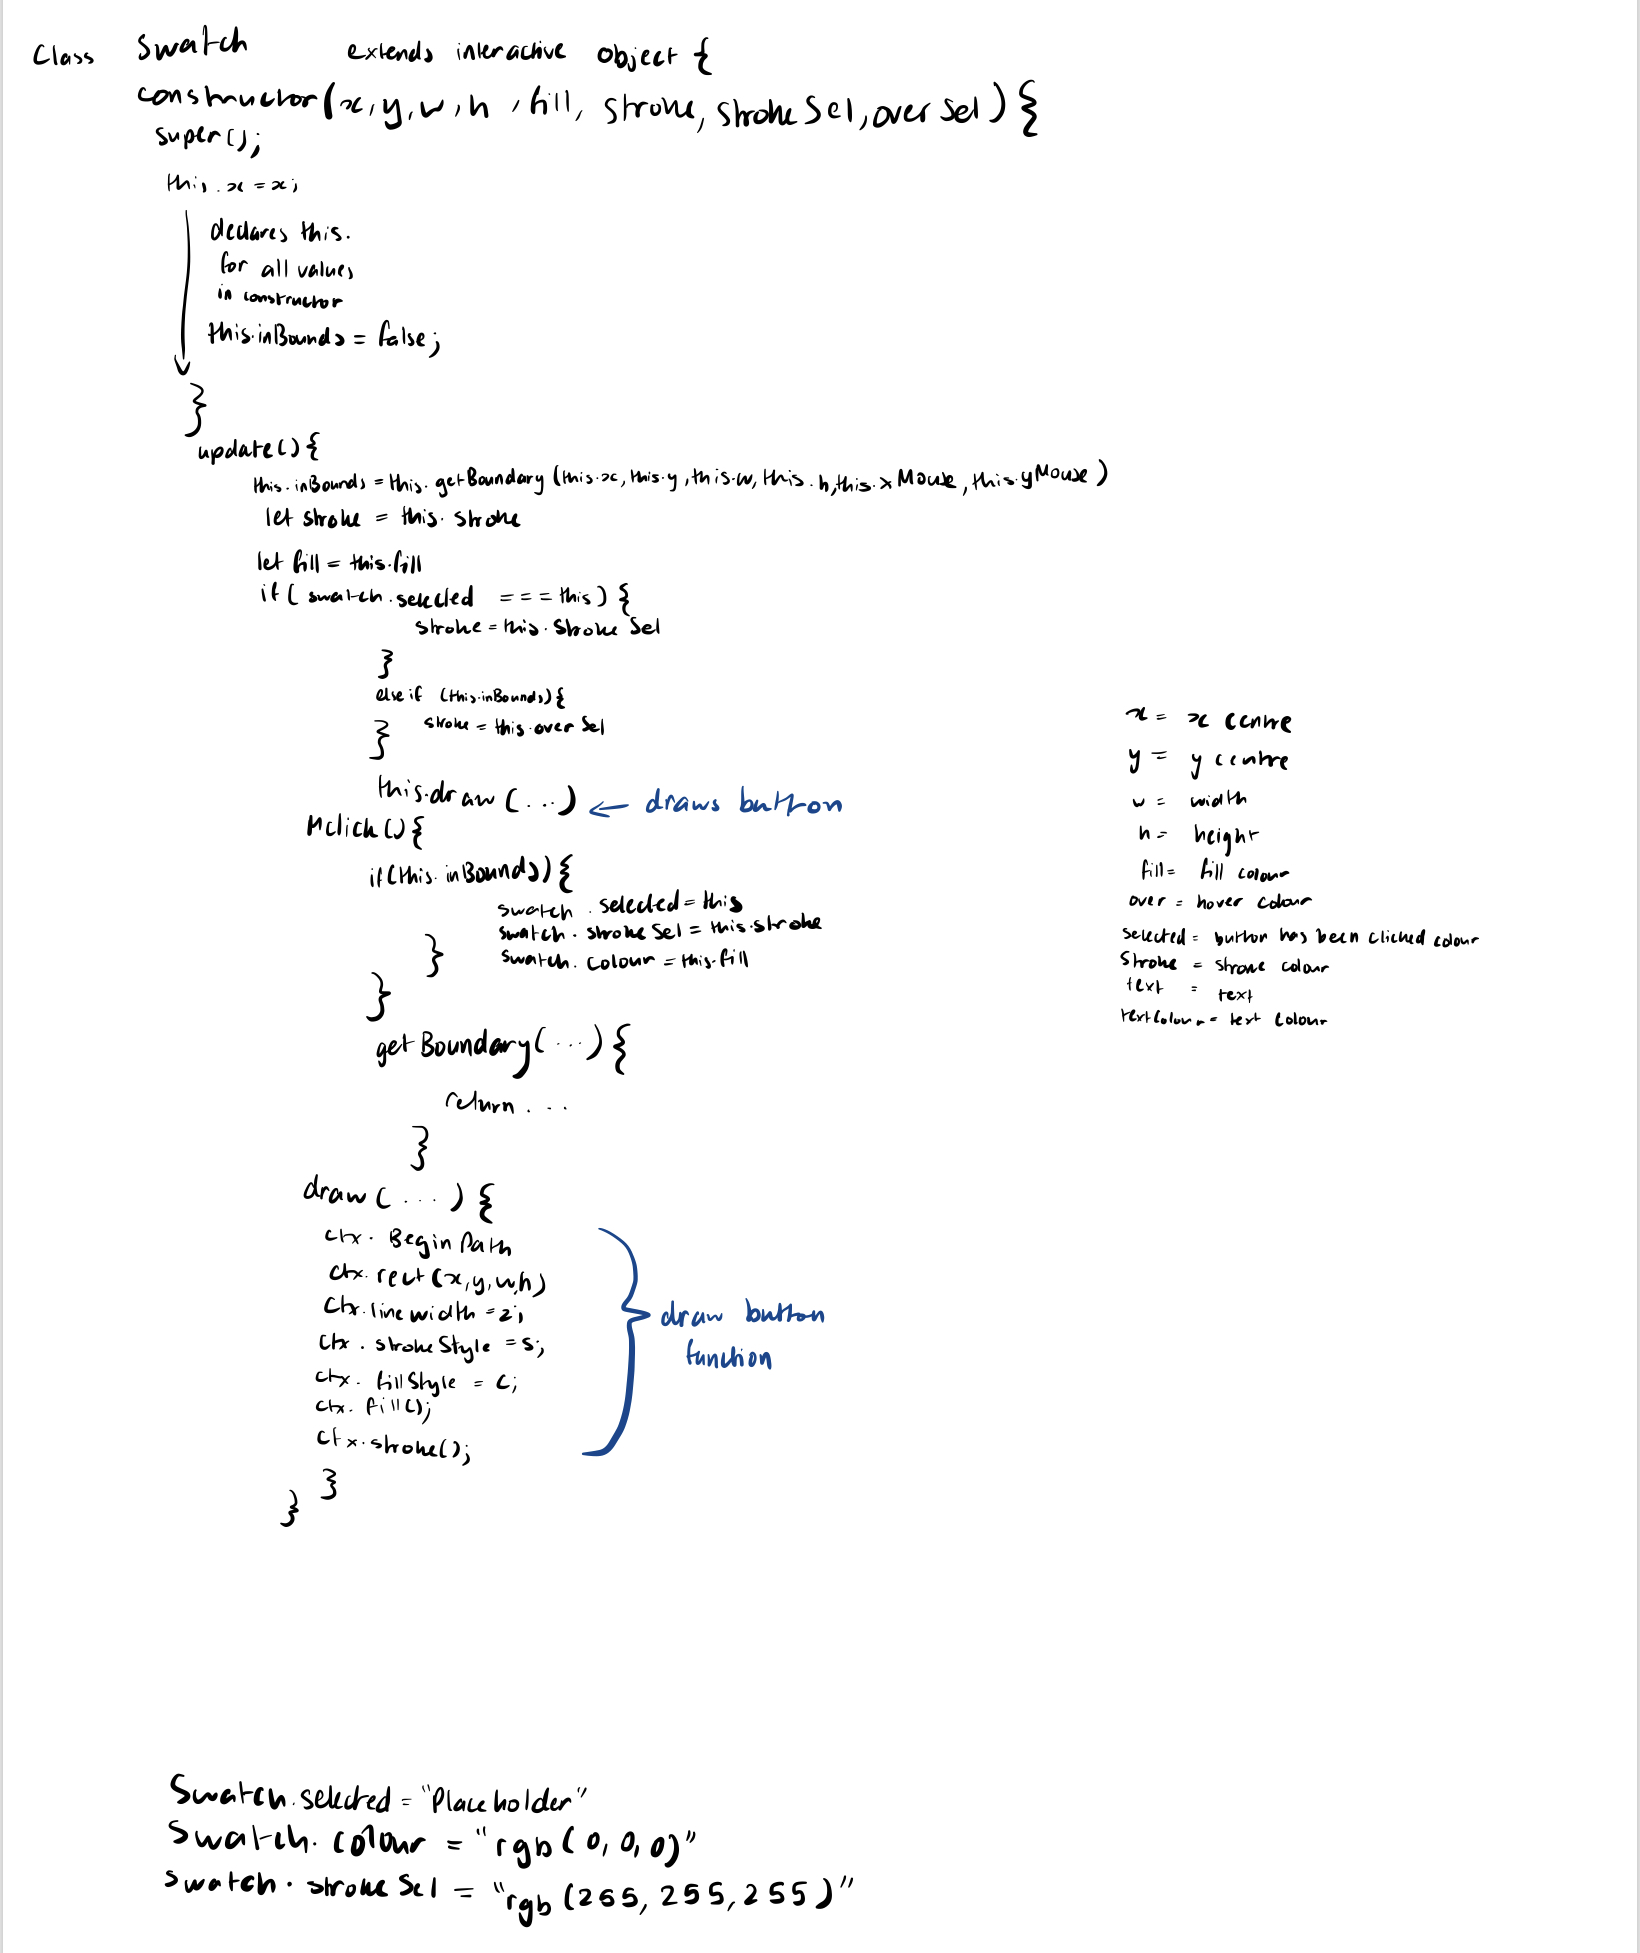 Class Swatch extends interactive object {
constructor(x, y, w, h, fill, stroke, stroke Sel, over Sel) {
super();
this.x = x;
declares this.
for all values
in constructor
this.inBounds = false;
}
update() {
this.inBounds = this.getBoundary (this.x, this.y, this.w, this.h, this.xMouse, this.yMouse)
let stroke = this.stroke
let fill = this.fill
if( swatch.selected === this) {
stroke = this.Stroke Sel
}
else if (this.inBounds) {
stroke = this.over Sel
}
this.draw (...) ← draws button
Mclick() {
if(this.inBounds) {
swatch.selected = this
swatch.stroke Sel = this.stroke
swatch.colour = this.fill
}
}
getBoundary(...) {
return...
}
draw (...) {
ctx.Begin Path
ctx.rect (x, y, w, h)
ctx.line width = 2;
ctx.strokeStyle = s;
ctx.fillStyle = c;
ctx.fill();
ctx.stroke();
draw button
function
}
}
x = x centre
y = y centre
w = width
h = height
fill = fill colour
over = hover colour
selected = button has been clicked colour
Stroke = stroke colour
text = text
textColour = text colour
Swatch.selected = "Placeholder"
Swatch.colour = "rgb(0, 0, 0)"
swatch.stroke Sel = "rgb (255, 255, 255)"